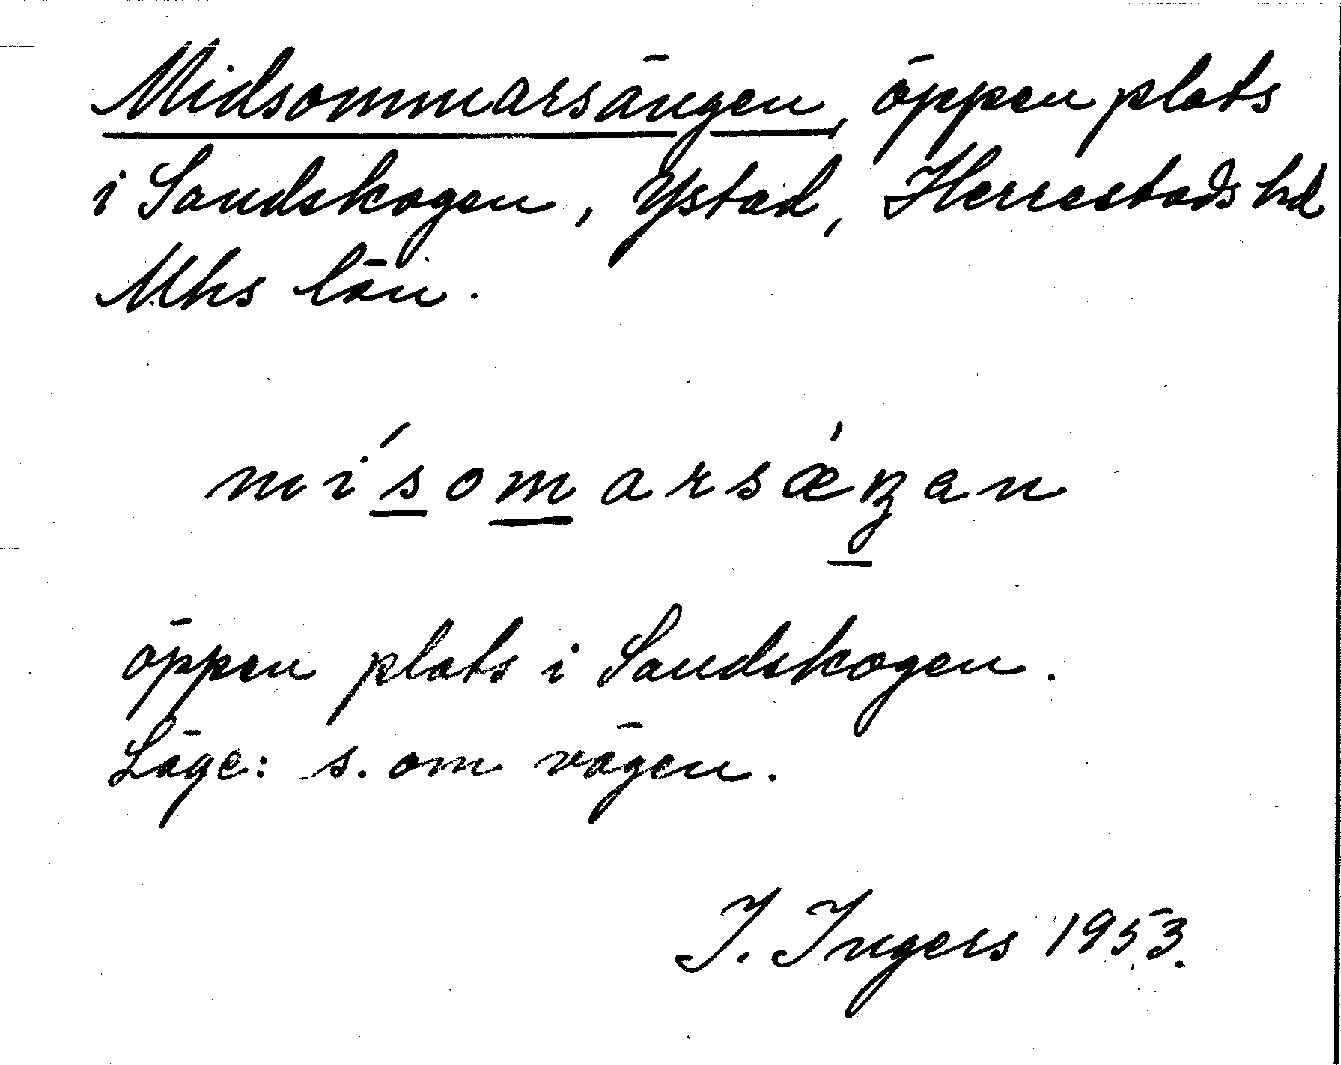 Midsommarsängen, öppen plats
i Sandskogen, Ystad, Herrestads hd
Mhs län.
mísomarsǽŋan
öppen plats i Sandskogen.
Läge: s. om vägen.
I. Ingers 1953.